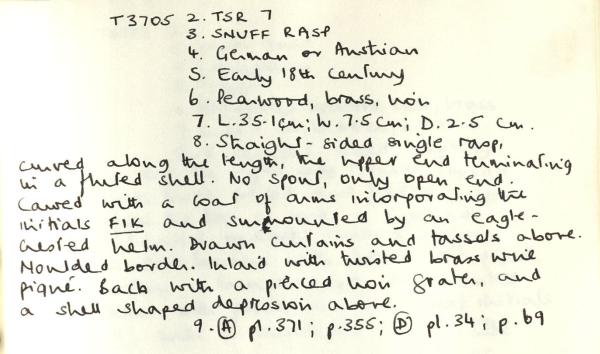 T3705 2. TSR 7
3. SNUFF RASP
4. German or Austrian
5. Early 18th century
6. Pearwood, brass, iron
7. L. 35.1cm; W. 7.5cm; D. 2.5 cm.
8. Straight-sided single rasp,
curved along the length, the upper end terminating
in a fluted shell. No spout, only open end.
Carved with a coat of arms incorporating the
initials FIK and surmounted by an eagle-
crested helm. Drawn curtains and tassels above.
Moulded border. Inlaid with twisted brass wire
piqué. Back with a pierced iron grater, and
a shell shaped depression above.
9. (A) pl. 371; p. 355; (D) pl. 34; p. 69